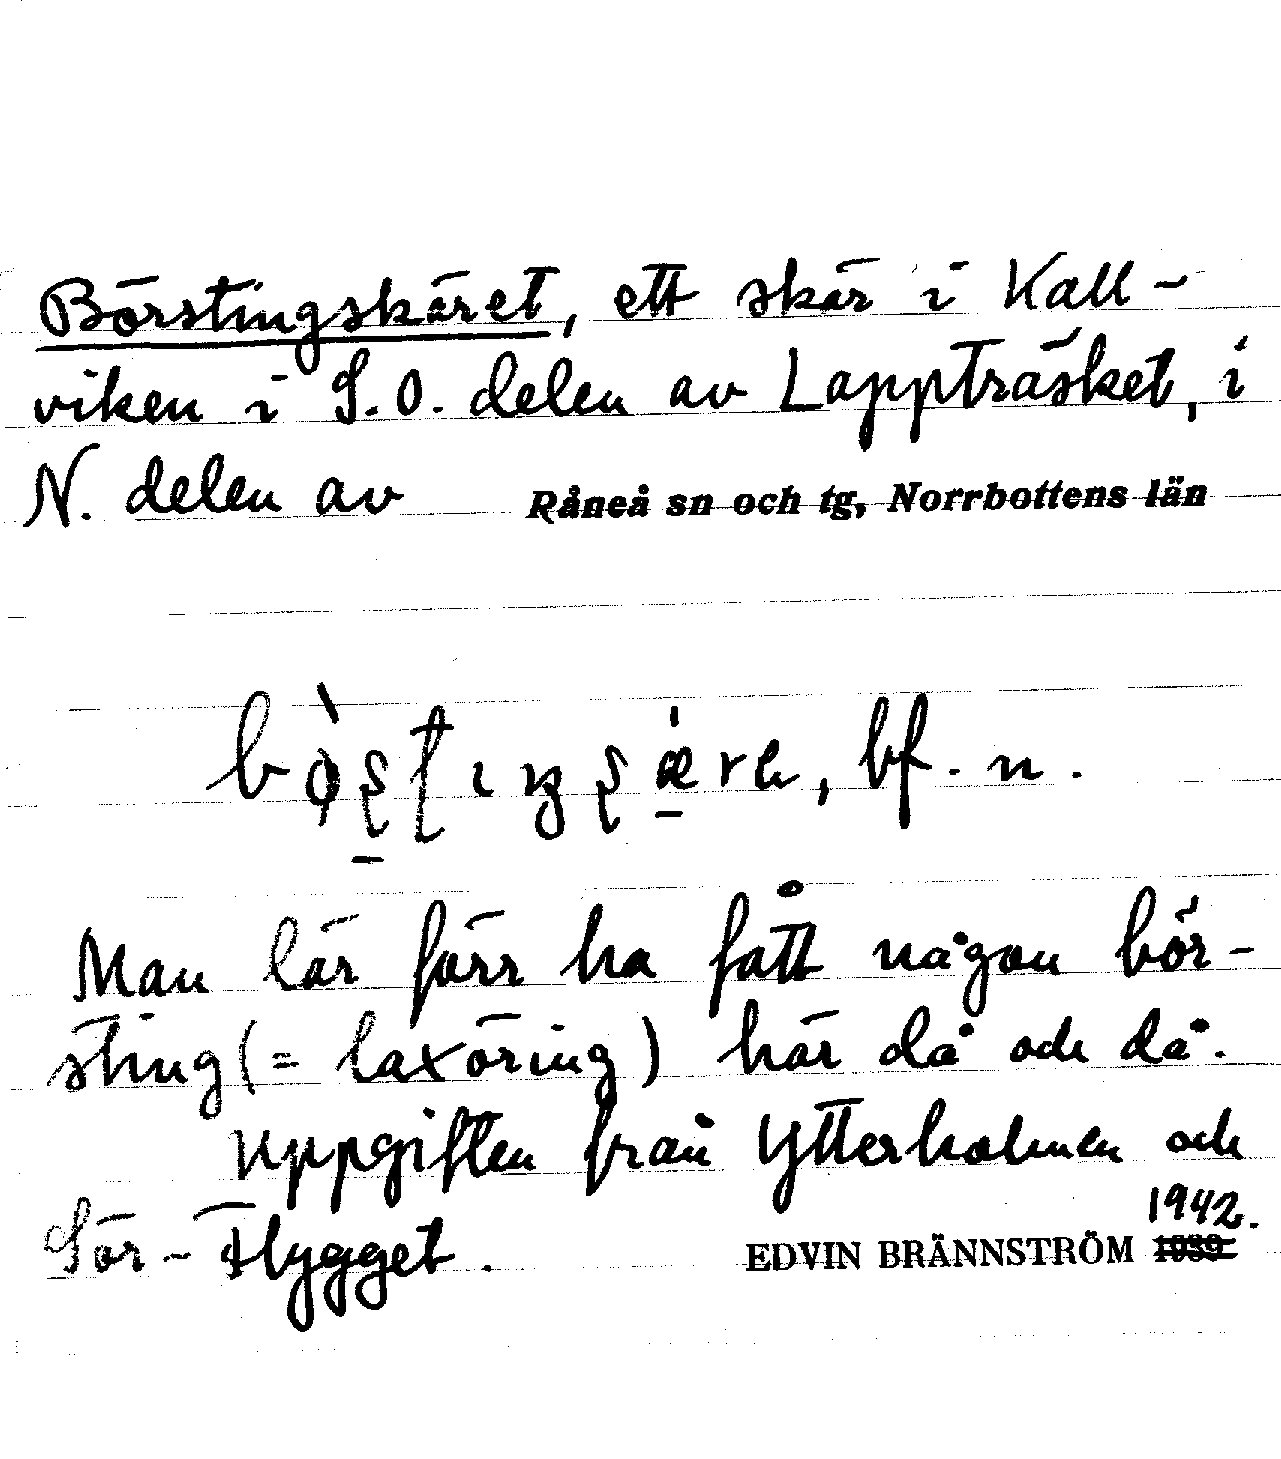 Börstingskäret, ett skär i Kall-
viken i S.O. delen av Lappträsket, i
N. delen av Råneå sn och tg, Norrbottens län
bf. n.
Man lär förr ha fått någon bör-
sting (= laxöring) här då och då.
Uppgiften från Ytterholmen och
Sör-Flygget.
EDVIN BRÄNNSTRÖM 1942.